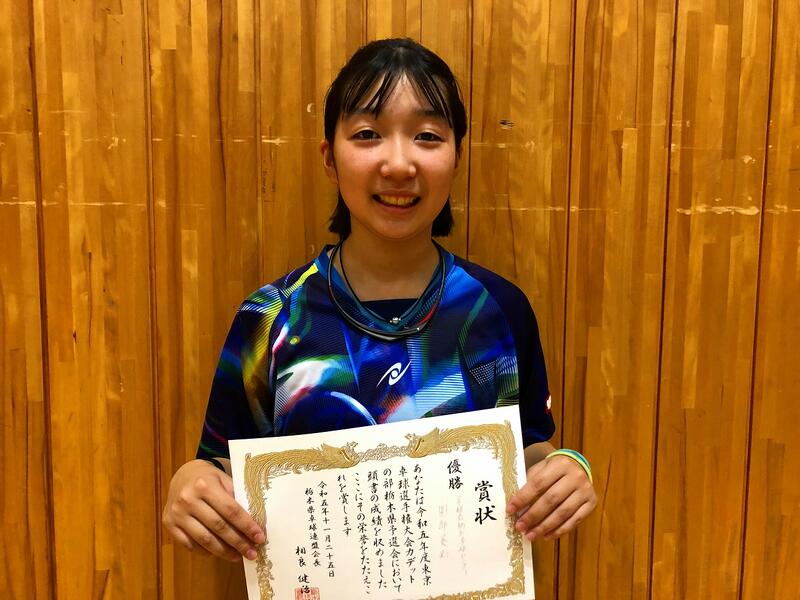 賞状
優勝
あなたは令和五年度東京
卓球選手権大会カデット
の部栃木県予選会において
頭書の成績を収めました
ここにその栄誉をたたえこ
れを賞します
令和五年十一月二十五日
栃木県卓球連盟会長
相良 健治